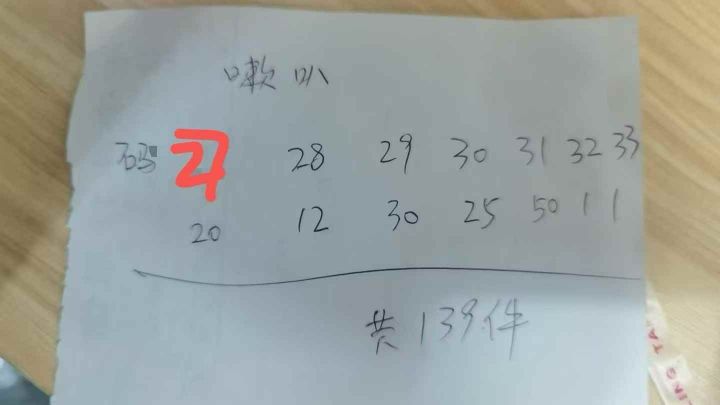 喇叭
码 27 28 29 30 31 32 33
20 12 30 25 50 1 1
共139件
LING TA